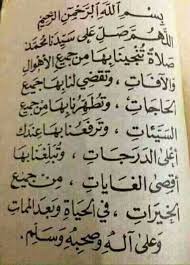 بِسْمِ اللهِ الرَّحْمٰنِ الرَّحِيْمِ
اَللّٰهُمَّ صَلِّ عَلٰى سَيِّدِنَا مُحَمَّدٍ
صَلَاةً تُنْجِيْنَا بِهَا مِنْ جَمِيْعِ الْأَهْوَالِ
وَالْآفَاتِ ، وَتَقْضِيْ لَنَا بِهَا جَمِيْعَ
الْحَاجَاتِ ، وَتُطَهِّرُنَا بِهَا مِنْ جَمِيْعِ
السَّيِّئَاتِ ، وَتَرْفَعُنَا بِهَا عِنْدَكَ
أَعْلَى الدَّرَجَاتِ ، وَتُبَلِّغُنَا بِهَا
أَقْصَى الْغَايَاتِ ، مِنْ جَمِيْعِ
الْخَيْرَاتِ ، فِي الْحَيَاةِ وَبَعْدَ الْمَمَاتِ
وَعَلٰى آلِهِ وَصَحْبِهِ وَسَلِّمْ .